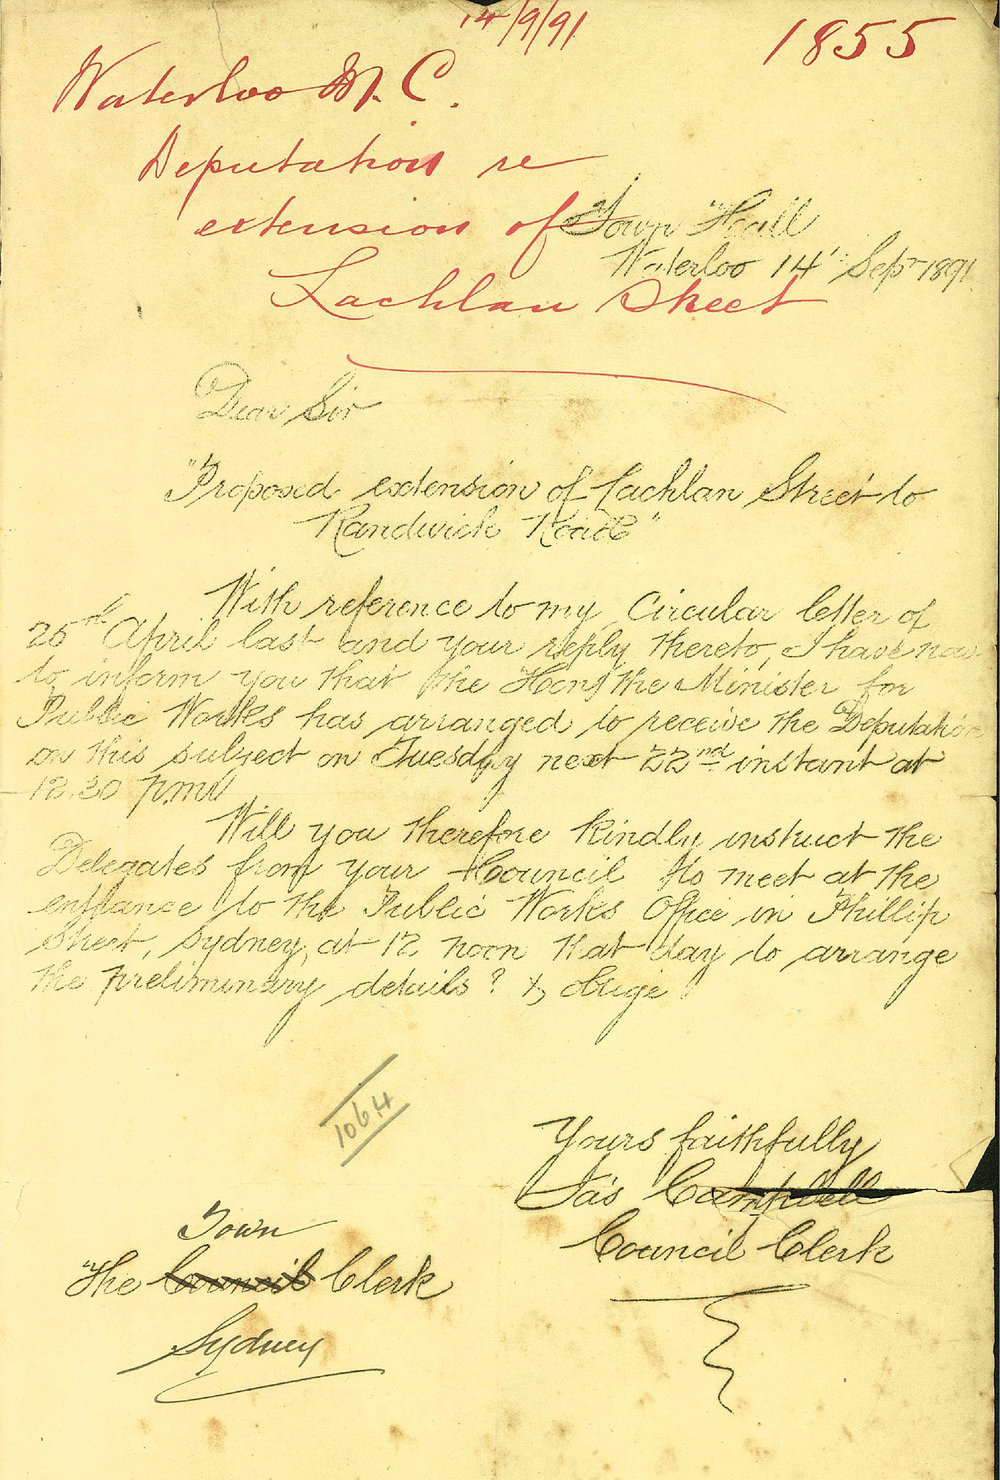 14/9/91
1855
Waterloo M.C.
Deputation re
extension of
Lachlan Street
Town Hall
Waterloo 14th Sept 1891
Dear Sir
"Proposed extension of Lachlan Street to
Randwick Road"
With reference to my Circular letter of
25th April last and your reply thereto, I have now
to inform you that the Hon. the Minister for
Public Works has arranged to receive the Deputation
on this subject on Tuesday next 22nd instant at
12.30 p.m.
Will you therefore kindly instruct the
Delegates from your Council to meet at the
entrance to the Public Works Office in Phillip
Street, Sydney, at 12 noon that day to arrange
the preliminary details? & oblige
1064
Yours faithfully
Jas Campbell
Council Clerk
Town
The Council Clerk
Sydney